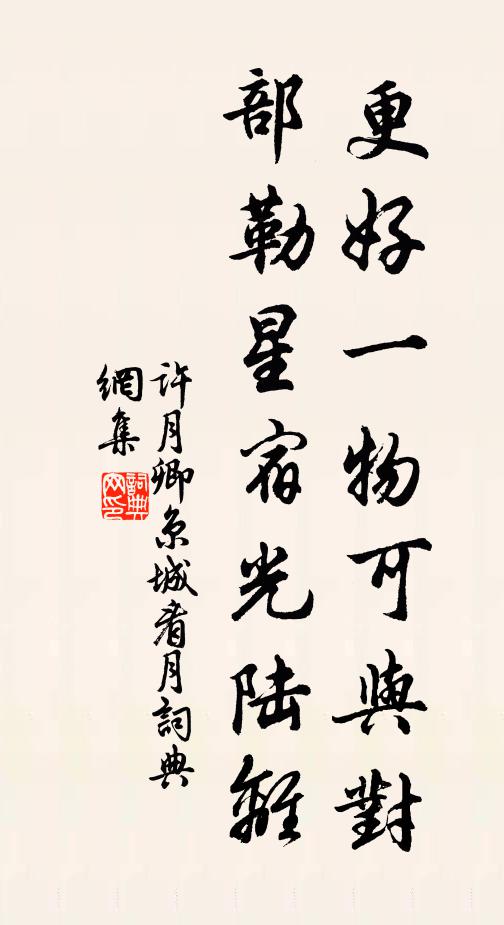 更好一物可與對
部勒星宿光陸離
許月卿京城看月詞典
網集
詞典網印